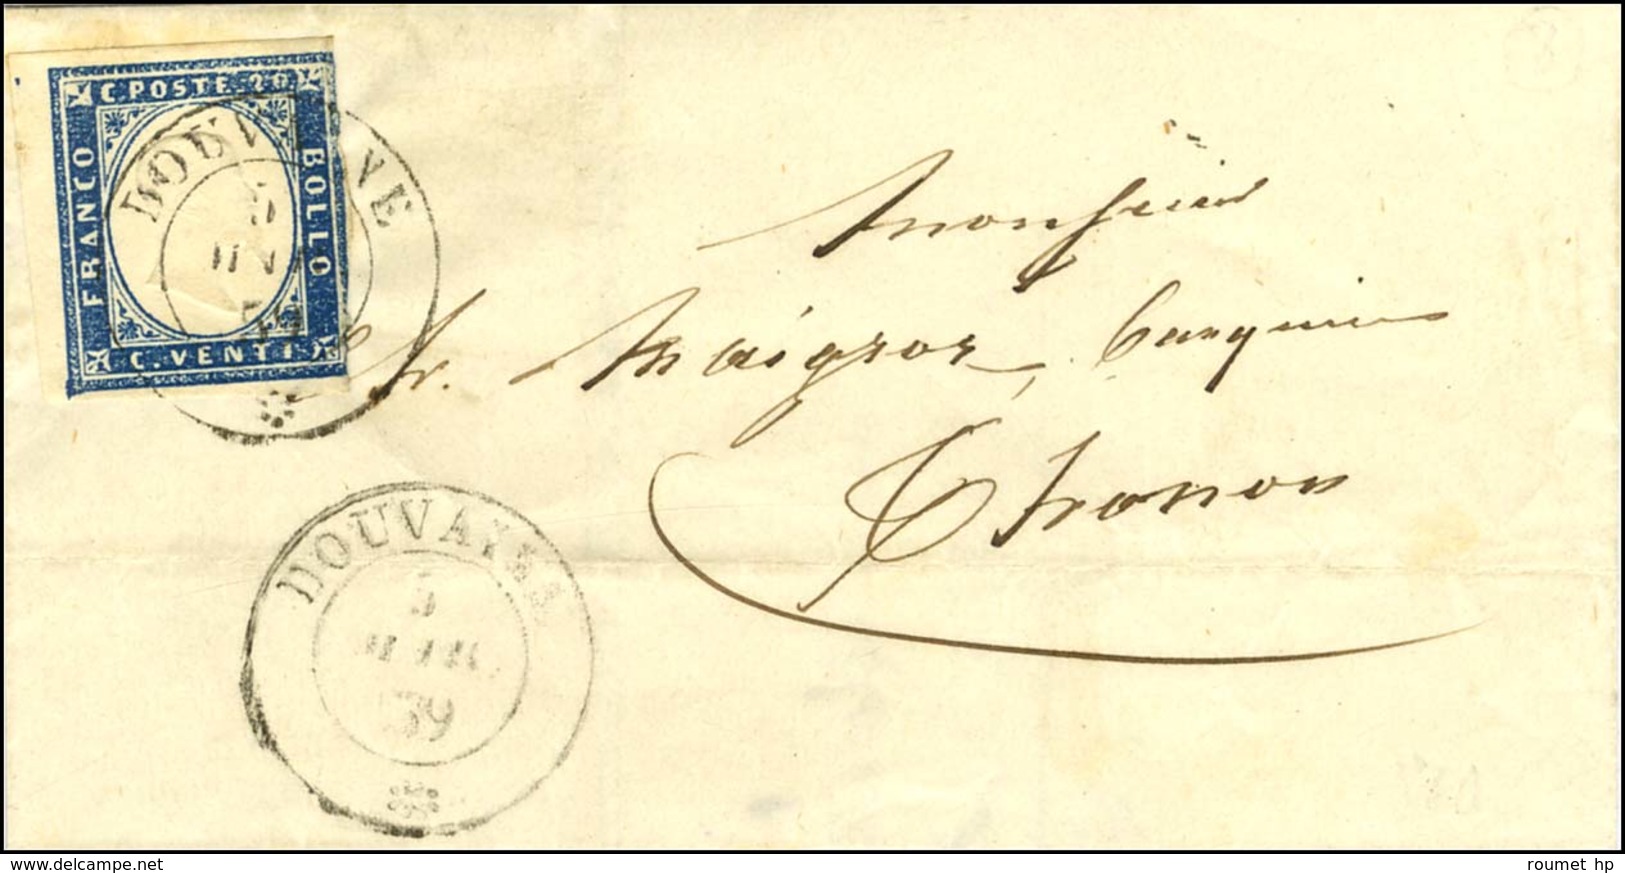 C. POSTE 20
FRANCO
BOLLO
C. VENTI
DOUVAINE
5
Monsieur
Fr. Maigros, banquier
Thonon
DOUVAINE
5
59
www.delcampe.net
roumet hp